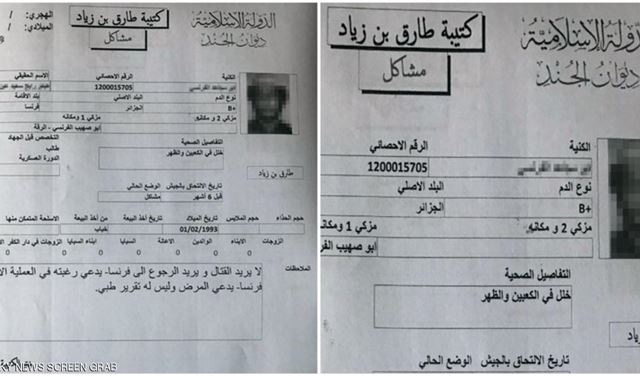 الدولة الإسلامية
ديوان الجند
كتيبة طارق بن زياد
مشاكل
الهجري: /
الميلادي: /
الكنية
الرقم الاحصائي
الاسم الحقيقي
1200015705
نوع الدم
البلد الاصلي
بلد الاقامة
B+
الجزائر
فرنسا
مزكي 2 و مكانه
مزكي 1 ومكانه
ابو صهيب الفرنسي - الرقة
طارق بن زياد
التفاصيل الصحية
التخصص قبل الجهاد
خلل في الكعبين والظهر
طالب
الدورة العسكرية
تاريخ الالتحاق بالجيش
الوضع الحالي
قبل 6 أشهر
مشاكل
حجم الحذاء
حجم الملابس
تاريخ الميلاد
تاريخ أخذ البيعة
من أخذ البيعة
الاسلحة المتمكن منها
01/02/1993
خباب
الزوجات
الابناء
الوالدين
الاعالة
السبايا
ابناء السبايا
الزوجات في دار الكفر
0 0 0 0 0
الملاحظات
لا يريد القتال و يريد الرجوع الى فرنسا- يدعي رغبته في العملية
فرنسا- يدعي المرض وليس له تقرير طبي.
KY NEWS SCREEN GRAB
الدولة الإسلامية
ديوان الجند
كتيبة طارق بن زياد
مشاكل
الكنية
الرقم الاحصائي
1200015705
نوع الدم
البلد الاصلي
B+
الجزائر
مزكي 2 و مكانه
مزكي 1 ومكانه
ابو صهيب الفر
التفاصيل الصحية
خلل في الكعبين والظهر
زياد
تاريخ الالتحاق بالجيش
الوضع الحالي